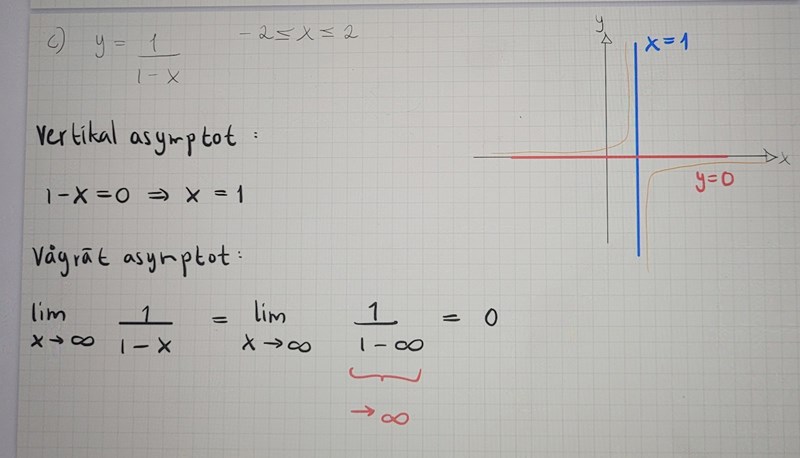 c) y = 1/(1-x) -2 ≤ x ≤ 2
y
x = 1
Vertikal asymptot :
x
1-x = 0 ⇒ x = 1
y=0
Vågrät asymptot :
lim x→∞ 1/(1-x) = lim x→∞ 1/(1-∞) = 0
→ ∞